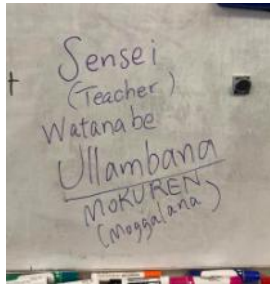 Sensei
(Teacher)
Watanabe
Ullambana
MOKUREN
(Moggalana)